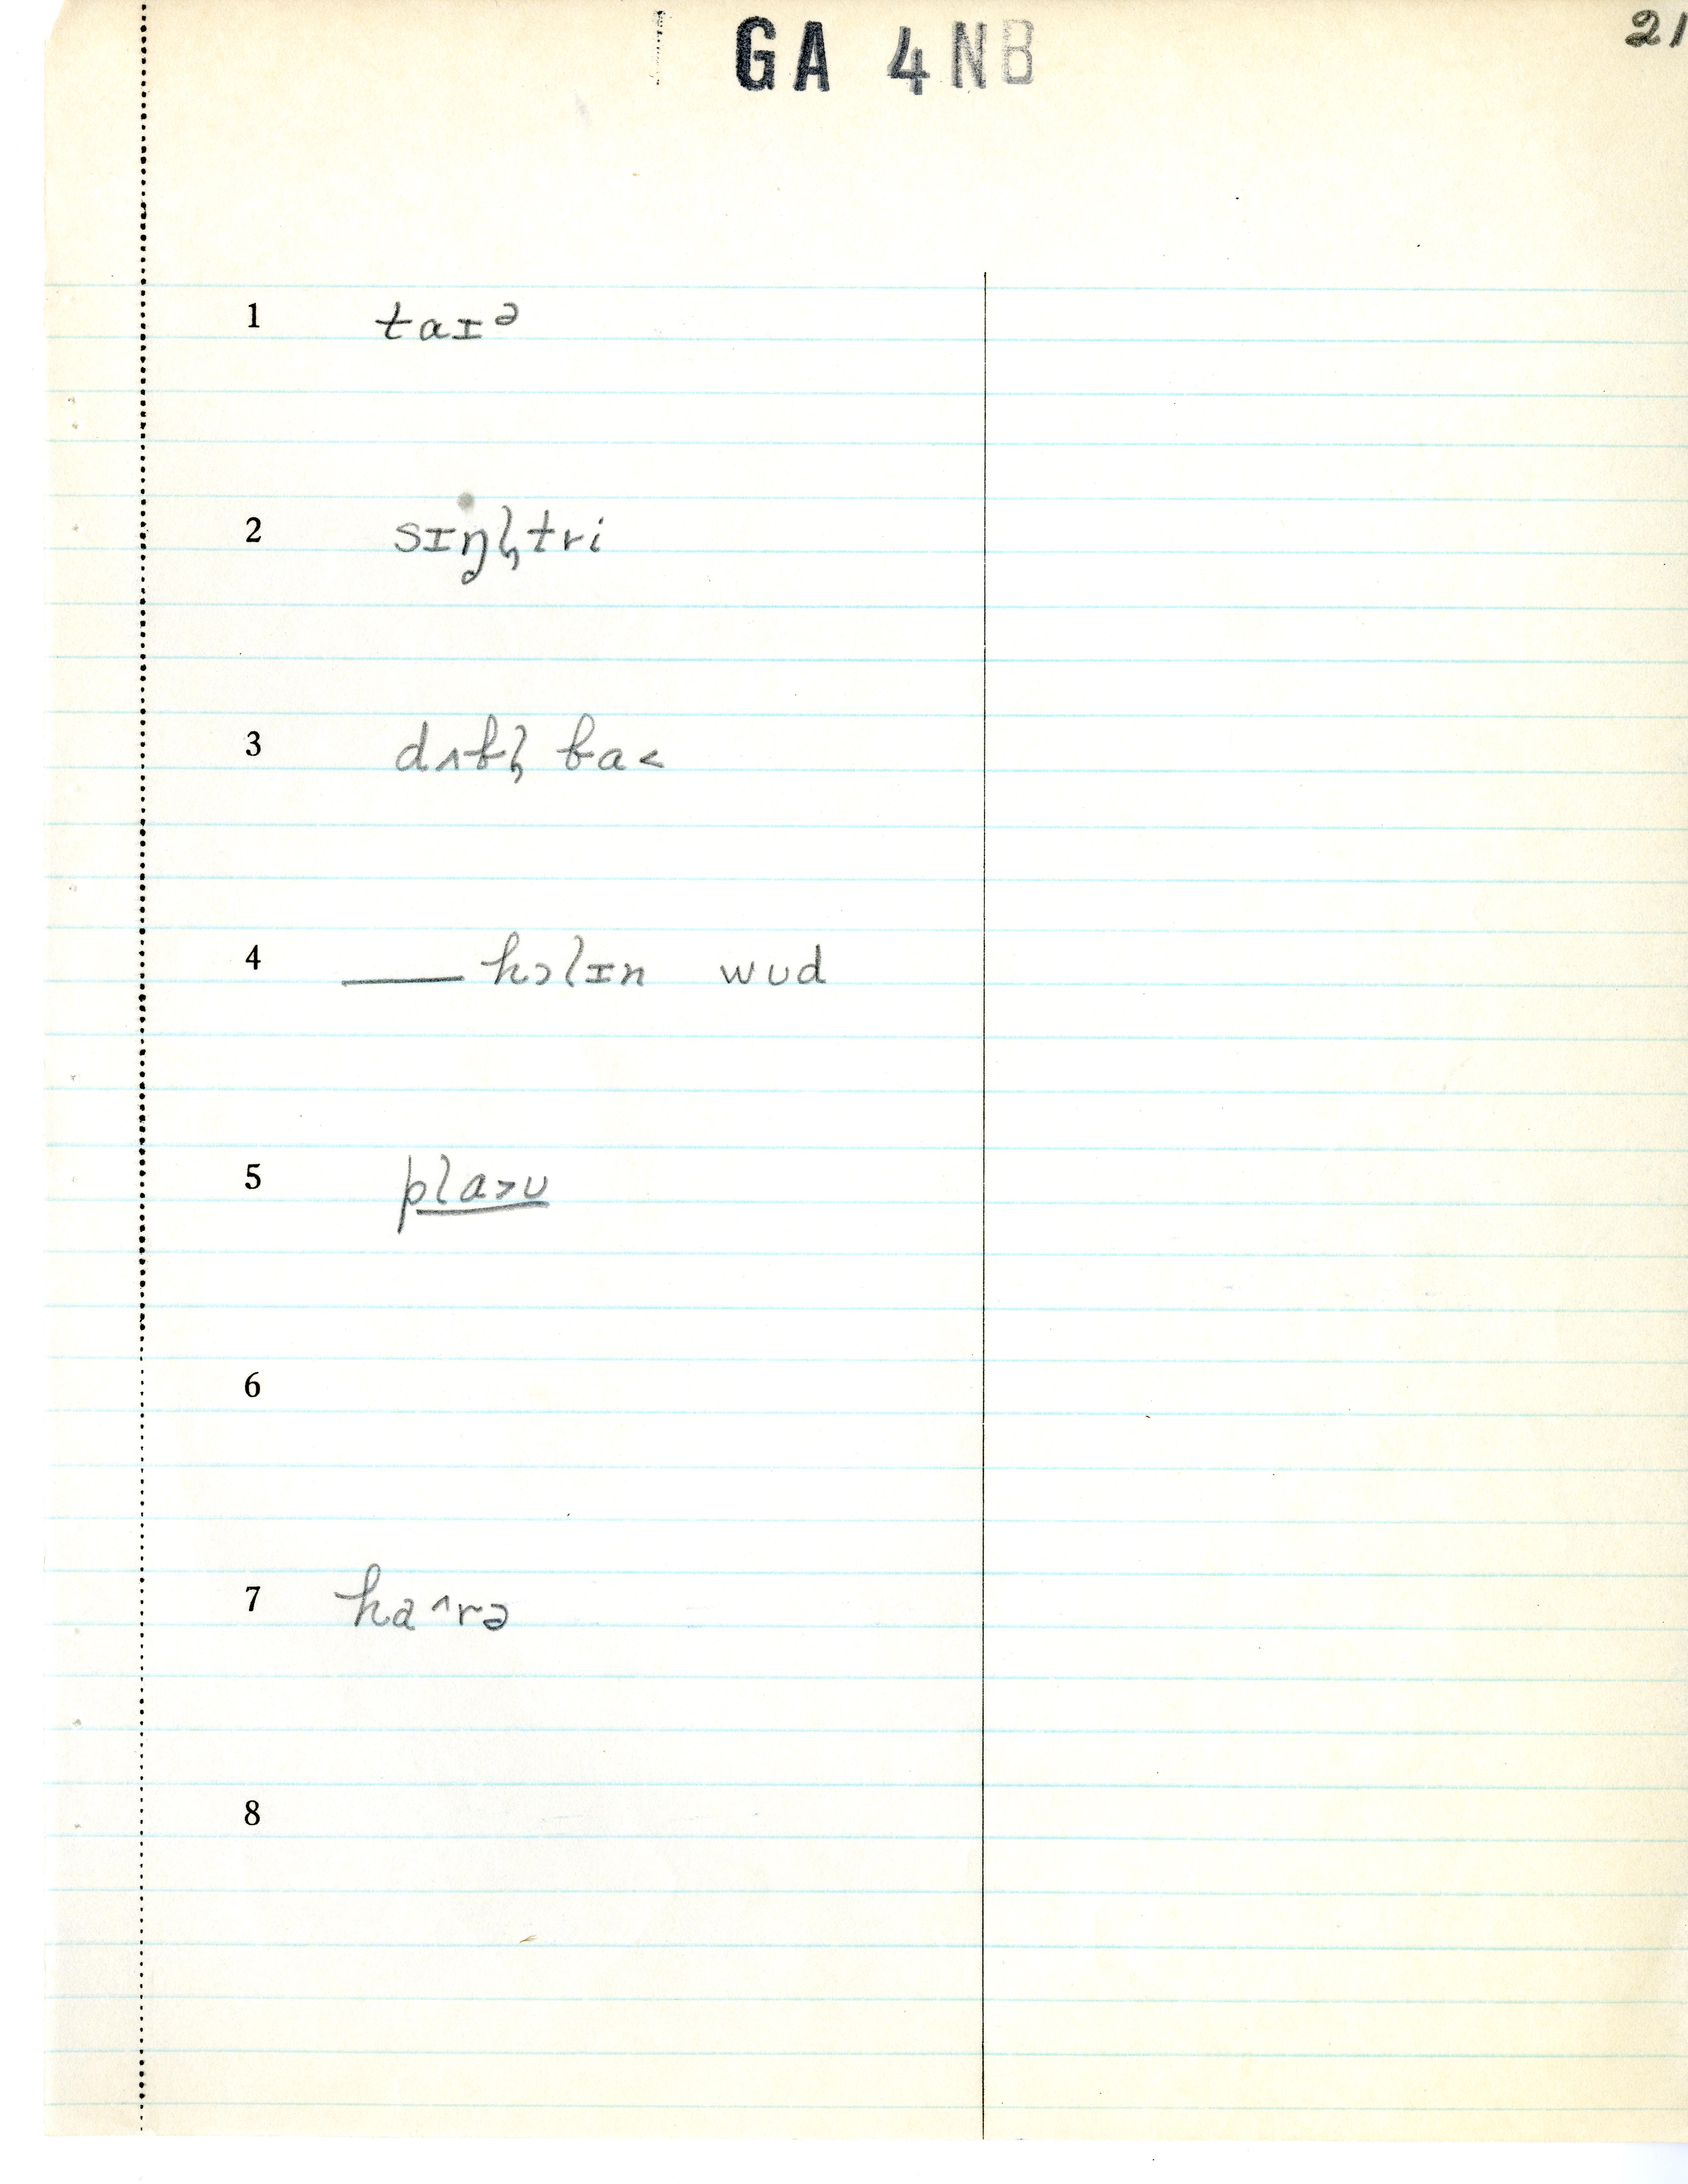 GA 4NB
21
1 taɪᵊ
2 sɪŋl̩tri
3 dʌbl̩ ba<
4 ___ hɔlɪn wud
5 pla>u
6
7 ha^rə
8